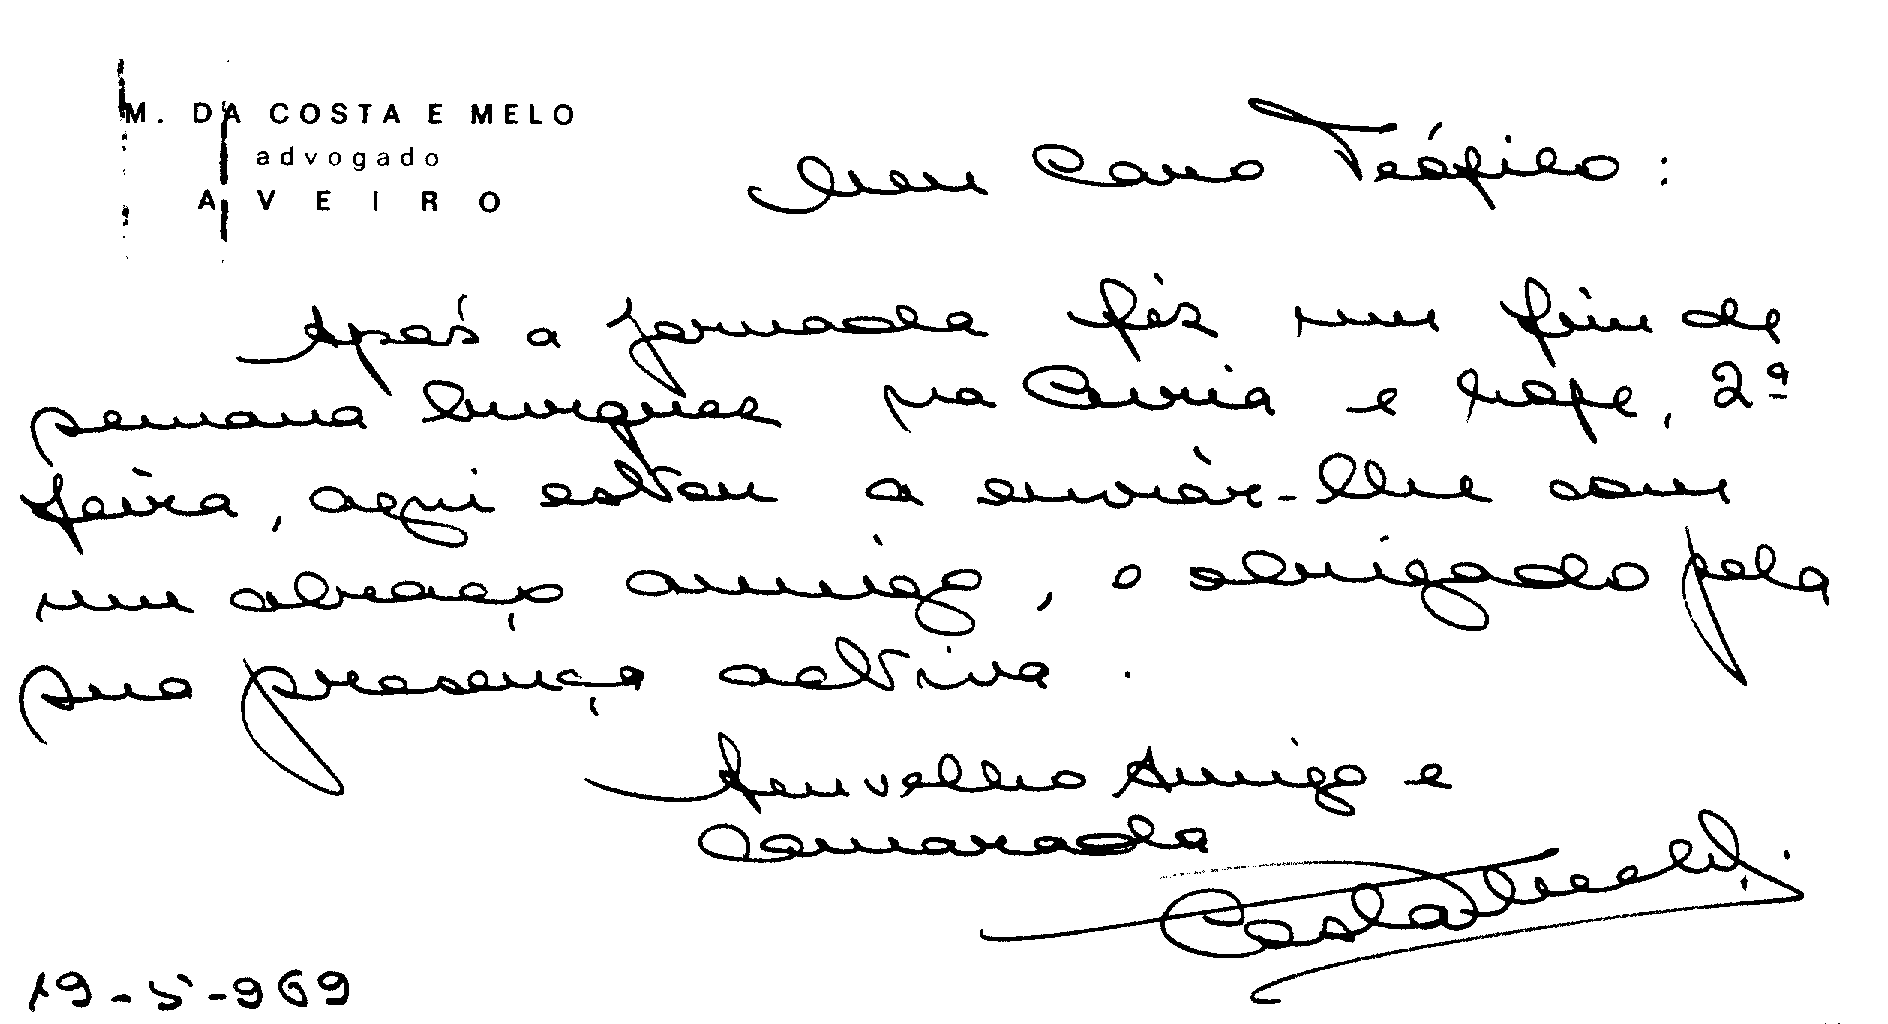 M. DA COSTA E MELO
advogado
AVEIRO
Meu Caro Teófilo:
Após a jornada fiz um fim de
semana burguez na Curia e hoje, 2ª
feira, aqui estou a enviár-lhe com
um abraço amigo, o obrigado pela
sua presença activa.
Seu velho Amigo e
Camarada
Costa e Melo
19-5-969